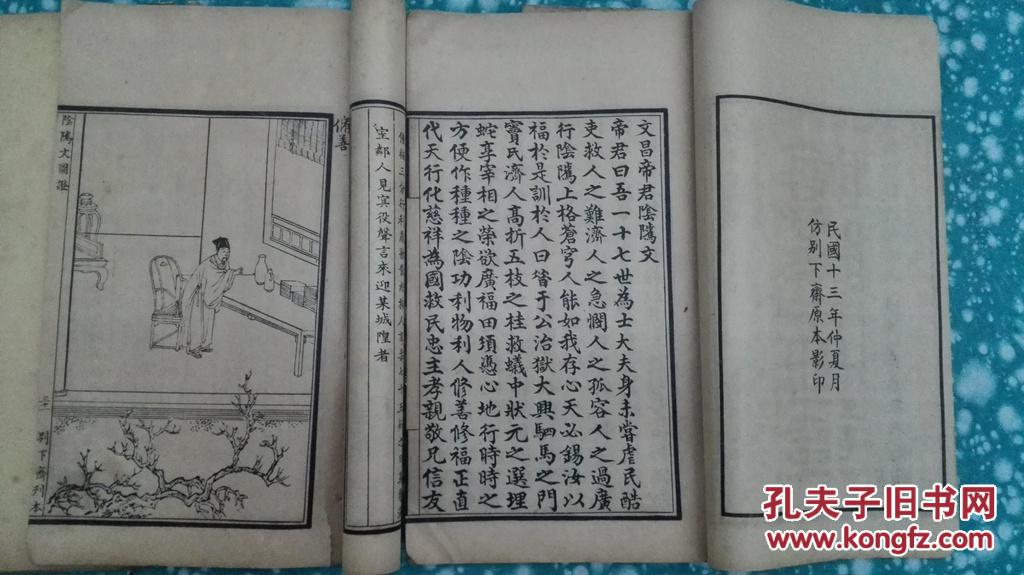 民國十三年仲夏月
仿别下齋原本影印
文昌帝君陰隲文
帝君曰吾一十七世為士大夫身未嘗虐民酷
吏救人之難濟人之急憫人之孤容人之過廣
行陰隲上格蒼穹人能如我存心天必錫汝以
福於是訓於人曰昔于公治獄大興駟馬之門
竇氏濟人高折五枝之桂救蟻中狀元之選埋
蛇享宰相之榮欲廣福田須憑心地行時時之
方便作種種之陰功利物利人修善修福正直
代天行化慈祥為國救民忠主孝親敬兄信友
室鄰人見賓役聲言來迎某城隍者
脩善
陰隲文圖證
別下齋刊本
孔夫子旧书网
www.kongfz.com